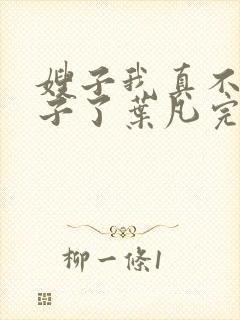 嫂子我真不
子了葉凡完
柳一條1